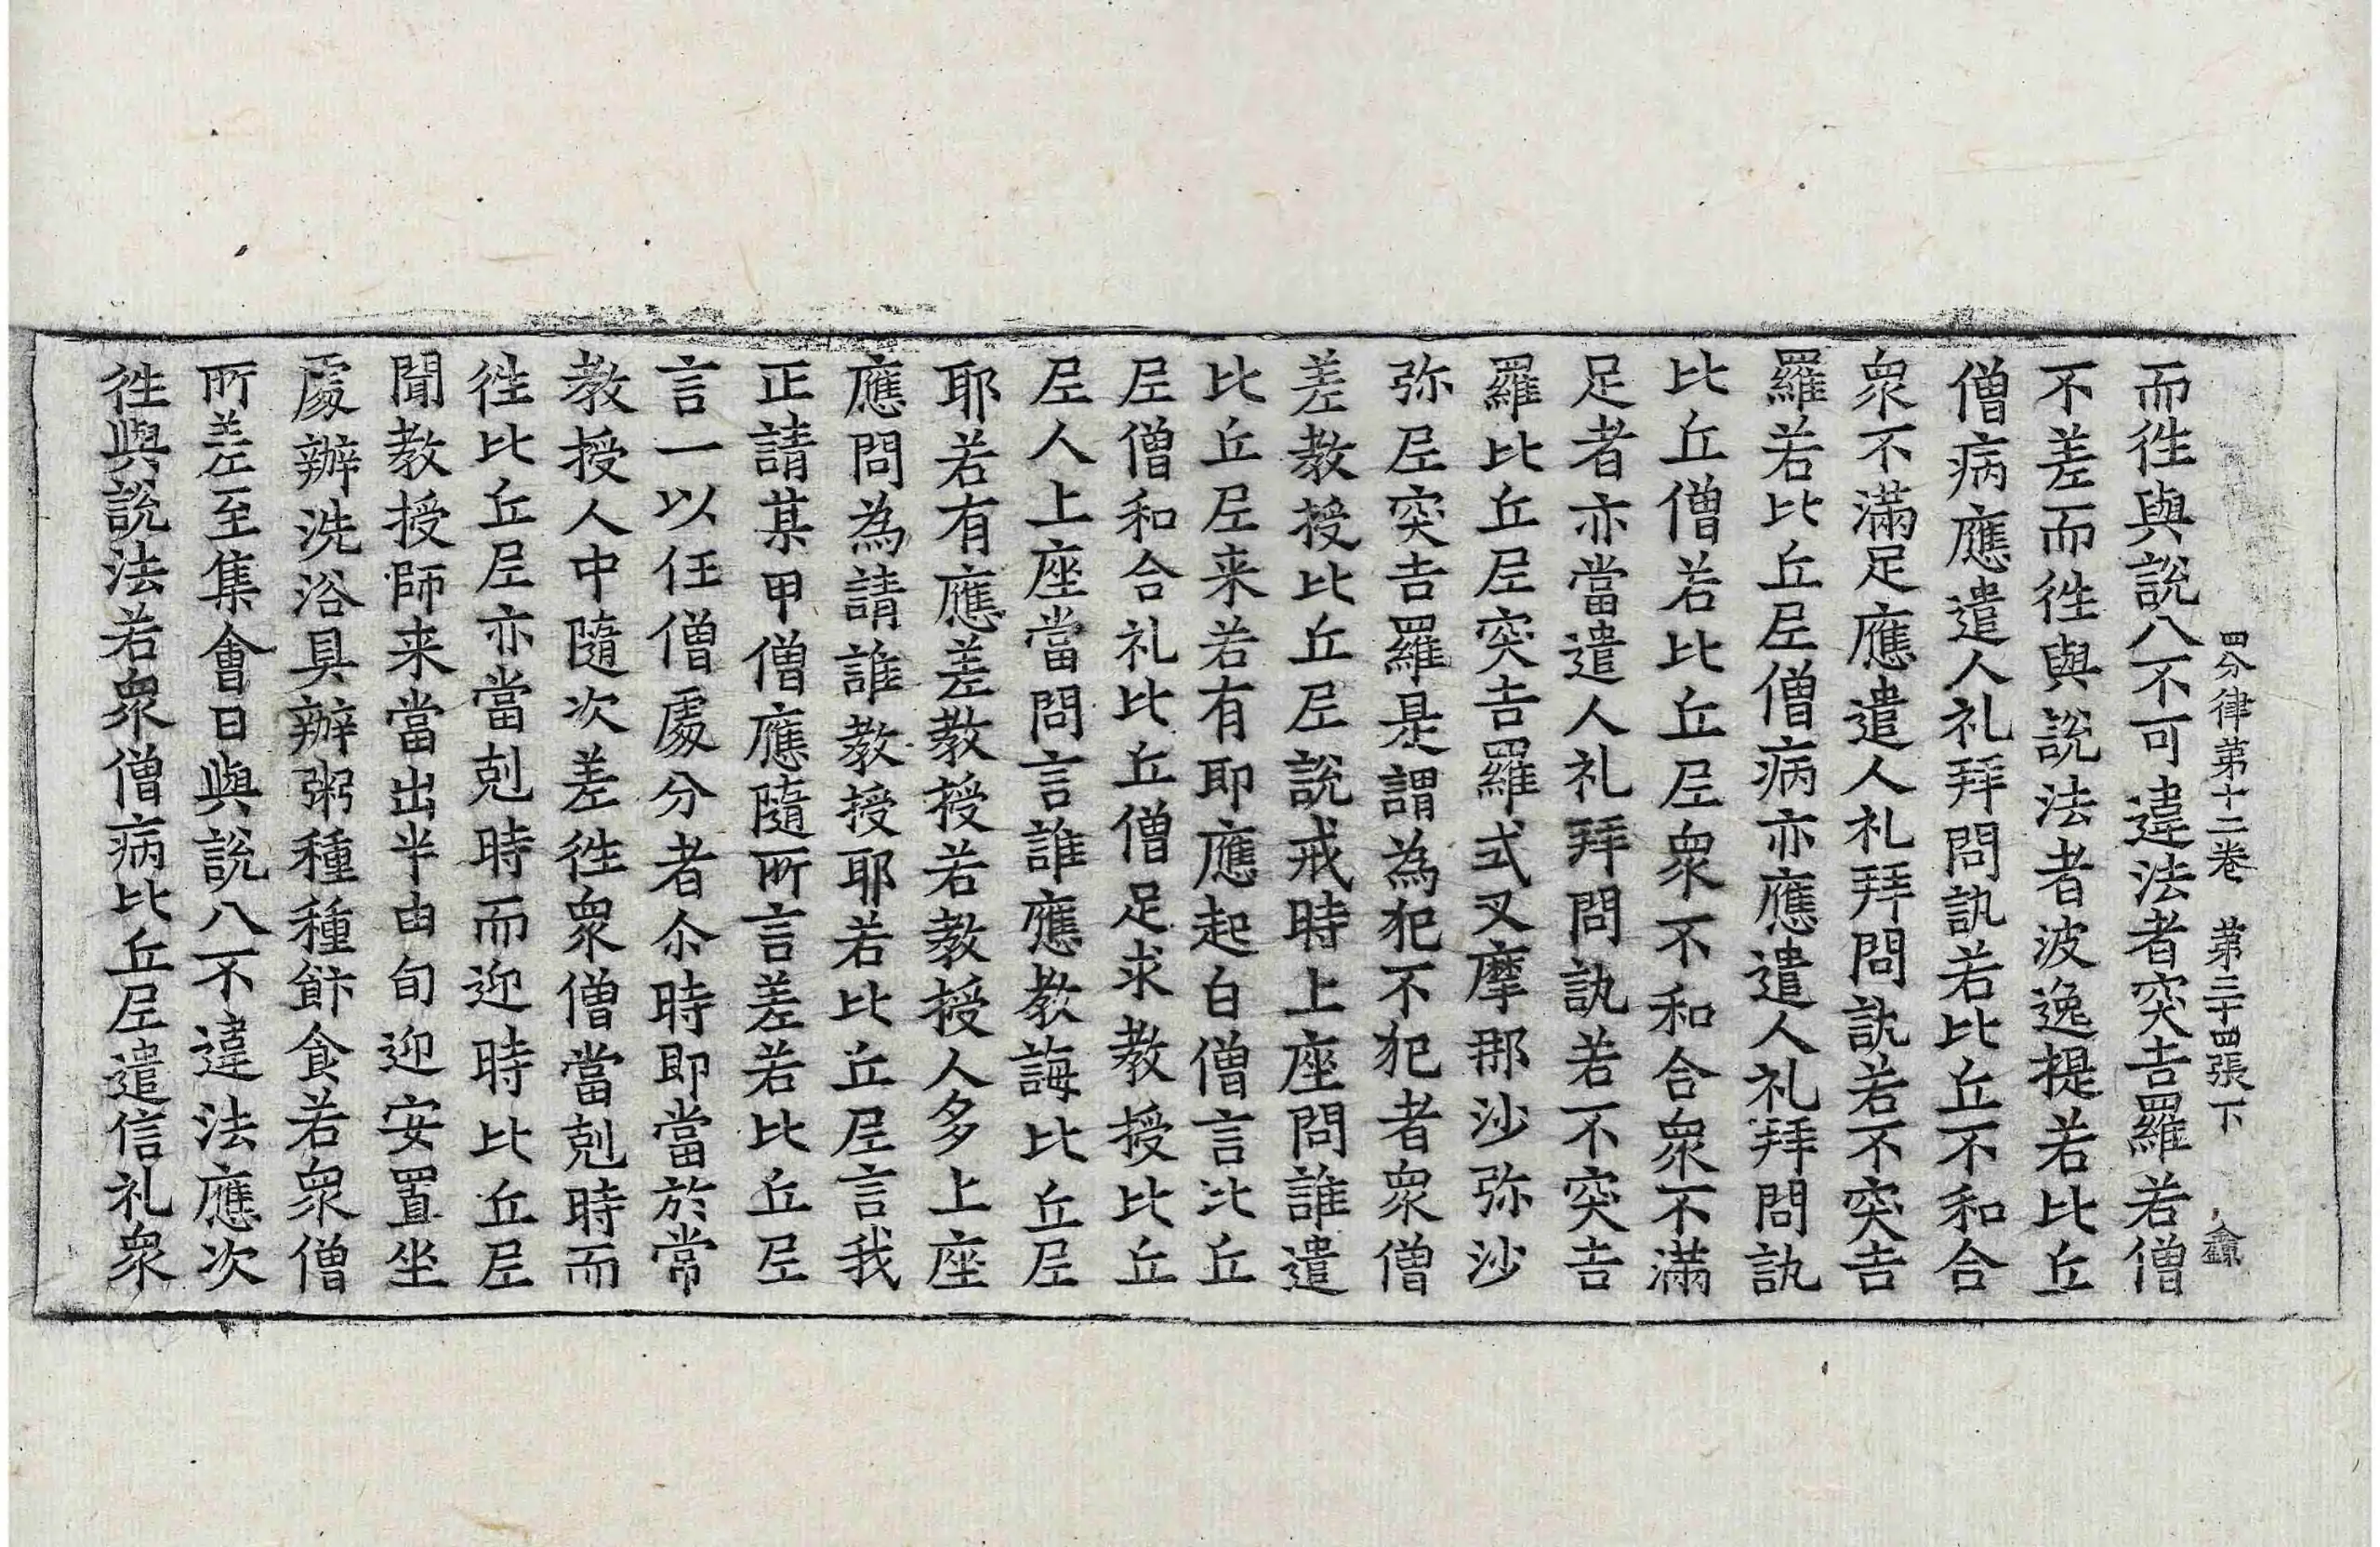 四分律第十二卷 第三十四張 下
而徃與說八不可違法者突吉羅若僧
不差而徃與說法者波逸提若比丘
僧病應遣人礼拜問訊若比丘不和合
衆不滿足應遣人礼拜問訊若不突吉
羅若比丘尼僧病亦應遣人礼拜問訊
比丘僧若比丘尼衆不和合衆不滿
足者亦當遣人礼拜問訊若不突吉
羅比丘尼突吉羅式叉摩那沙弥沙
弥尼突吉羅是謂為犯不犯者衆僧
差教授比丘尼說戒時上座問誰遣
比丘尼来若有耶應起白僧言比丘
尼僧和合礼比丘僧足求教授比丘
尼人上座當問言誰應教誨比丘尼
耶若有應差教授若教授人多上座
應問為請誰教授耶若比丘尼言我
正請某甲僧應隨所言差若比丘尼
言一以任僧處分者尒時即當於常
教授人中隨次差徃衆僧當剋時而
徃比丘尼亦當剋時而迎時比丘尼
聞教授師来當出半由旬迎安置坐
處辦洗浴具辦粥種種飰食若衆僧
所差至集會日與說八不違法應次
徃與說法若衆僧病比丘尼遣信礼衆